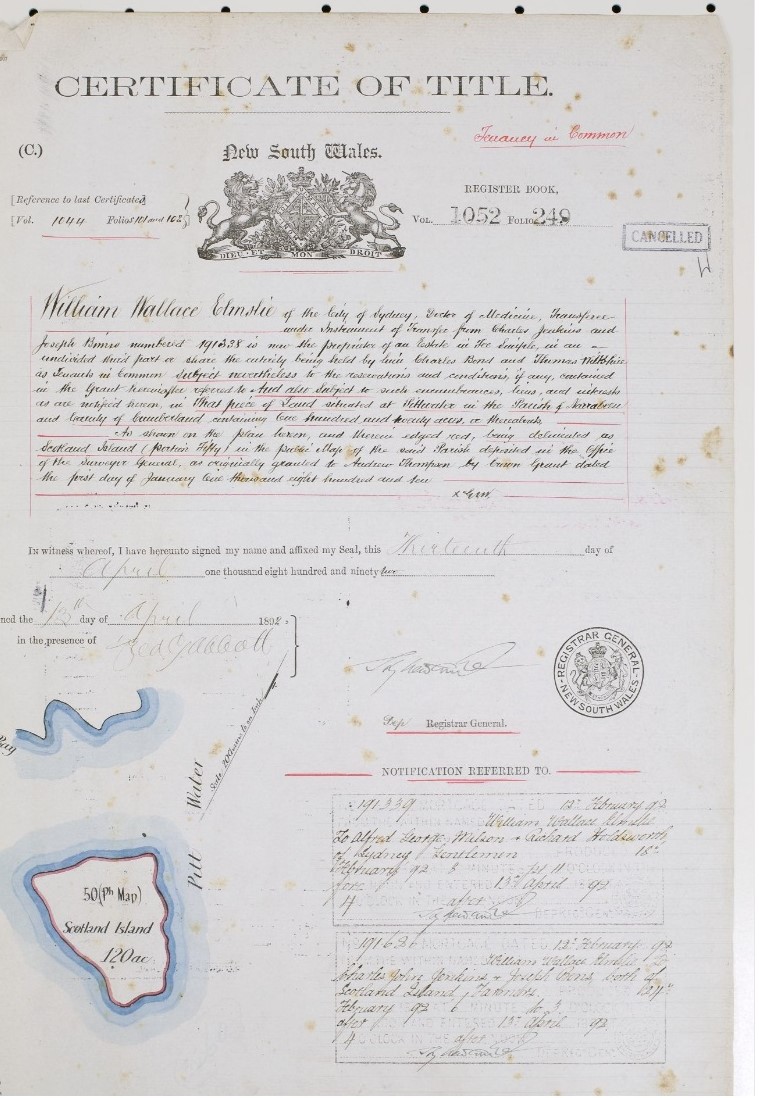 CERTIFICATE OF TITLE.
Tenancy in Common
(C.)
New South Wales.
[Reference to last Certificates,
[Vol. 1044 Folios 101 and 102]
REGISTER BOOK,
VOL. 1052 FOLIO 249
CANCELLED
DIEU ET MON DROIT
William Wallace Elmslie of the City of Sydney, Doctor of Medicine, Transferee
under Instrument of Transfer from Charles Jenkins and
Joseph numbered 191338 is now the proprietor of an Estate in Fee Simple, in an
undivided third part or share the entirety being held by him Charles Bond and Thomas Wiltshire
as Tenants in Common Subject nevertheless to the reservations and conditions, if any, contained
in the Grant hereinafter referred to And also Subject to such encumbrances, liens, and interests
as are notified hereon, in That piece of Land situated at Pittwater in the Parish of Narrabeen
and County of Cumberland containing One hundred and twenty acres, or thereabouts
As shown on the plan hereon, and therein edged red, being delineated as
Scotland Island (portion Fifty) in the public Map of the said Parish deposited in the Office
of the Surveyor General, as originally granted to Andrew Thompson by Crown Grant dated
the first day of January One thousand eight hundred and ten
In witness whereof, I have hereunto signed my name and affixed my Seal, this Thirteenth day of
April one thousand eight hundred and ninety two
ned the 13th day of April 1892.
in the presence of
REGISTRAR GENERAL
NEW SOUTH WALES
Dep Registrar General.
NOTIFICATION REFERRED TO.
Bay
Pitt Water
Scale
50 (Ph Map)
Scotland Island
120ac
191339 MORTGAGE DATED 12th February 92
William Wallace Elmslie
To Alfred George Wilson + Richard Holdsworth,
of Sydney Gentlemen 15th
February 92 pt 11
fore 13th April 92
4 after
191626 MORTGAGE DATED 12th February 92
William Wallace Elmslie to
Charles John Jenkins + both of
Scotland Island, Farmers, 24th
February 92 6 to 3
after 13th April 92
4 O'CLOCK IN THE after